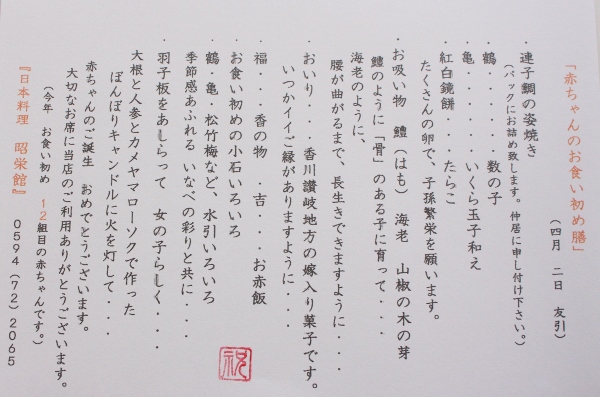 「赤ちゃんのお食い初め膳」
（四月　二日　友引）
・連子鯛の姿焼き
（パックにお詰め致します。仲居に申し付け下さい。）
・鶴・・・・・・数の子
・亀・・・・・・いくら玉子和え
・紅白鏡餅・・・・たらこ
たくさんの卵で、子孫繁栄を願います。
・お吸い物　鱧（はも）　海老　山椒の木の芽
鱧のように「骨」のある子に育って・・・
海老のように、
腰が曲がるまで、長生きできますように・・・・
・おいり・・・・香川讃岐地方の嫁入り菓子です。
いつかイイご縁がありますように・・・・
・福・・・・香の物　・吉・・・お赤飯
・お食い初めの小石いろいろ
・鶴・亀・松竹梅など、水引いろいろ
季節感あふれる　いなべの彩りと共に・・・
・羽子板をあしらって　女の子らしく・・・
大根と人参とカメヤマローソクで作った
ぼんぼりキャンドルに火を灯して・・・・
赤ちゃんのご誕生　おめでとうございます。
大切なお席に当店のご利用ありがとうございます。
（今年　お食い初め　12組目の赤ちゃんです。）
『日本料理　昭栄館』　0594（72）2065
祝